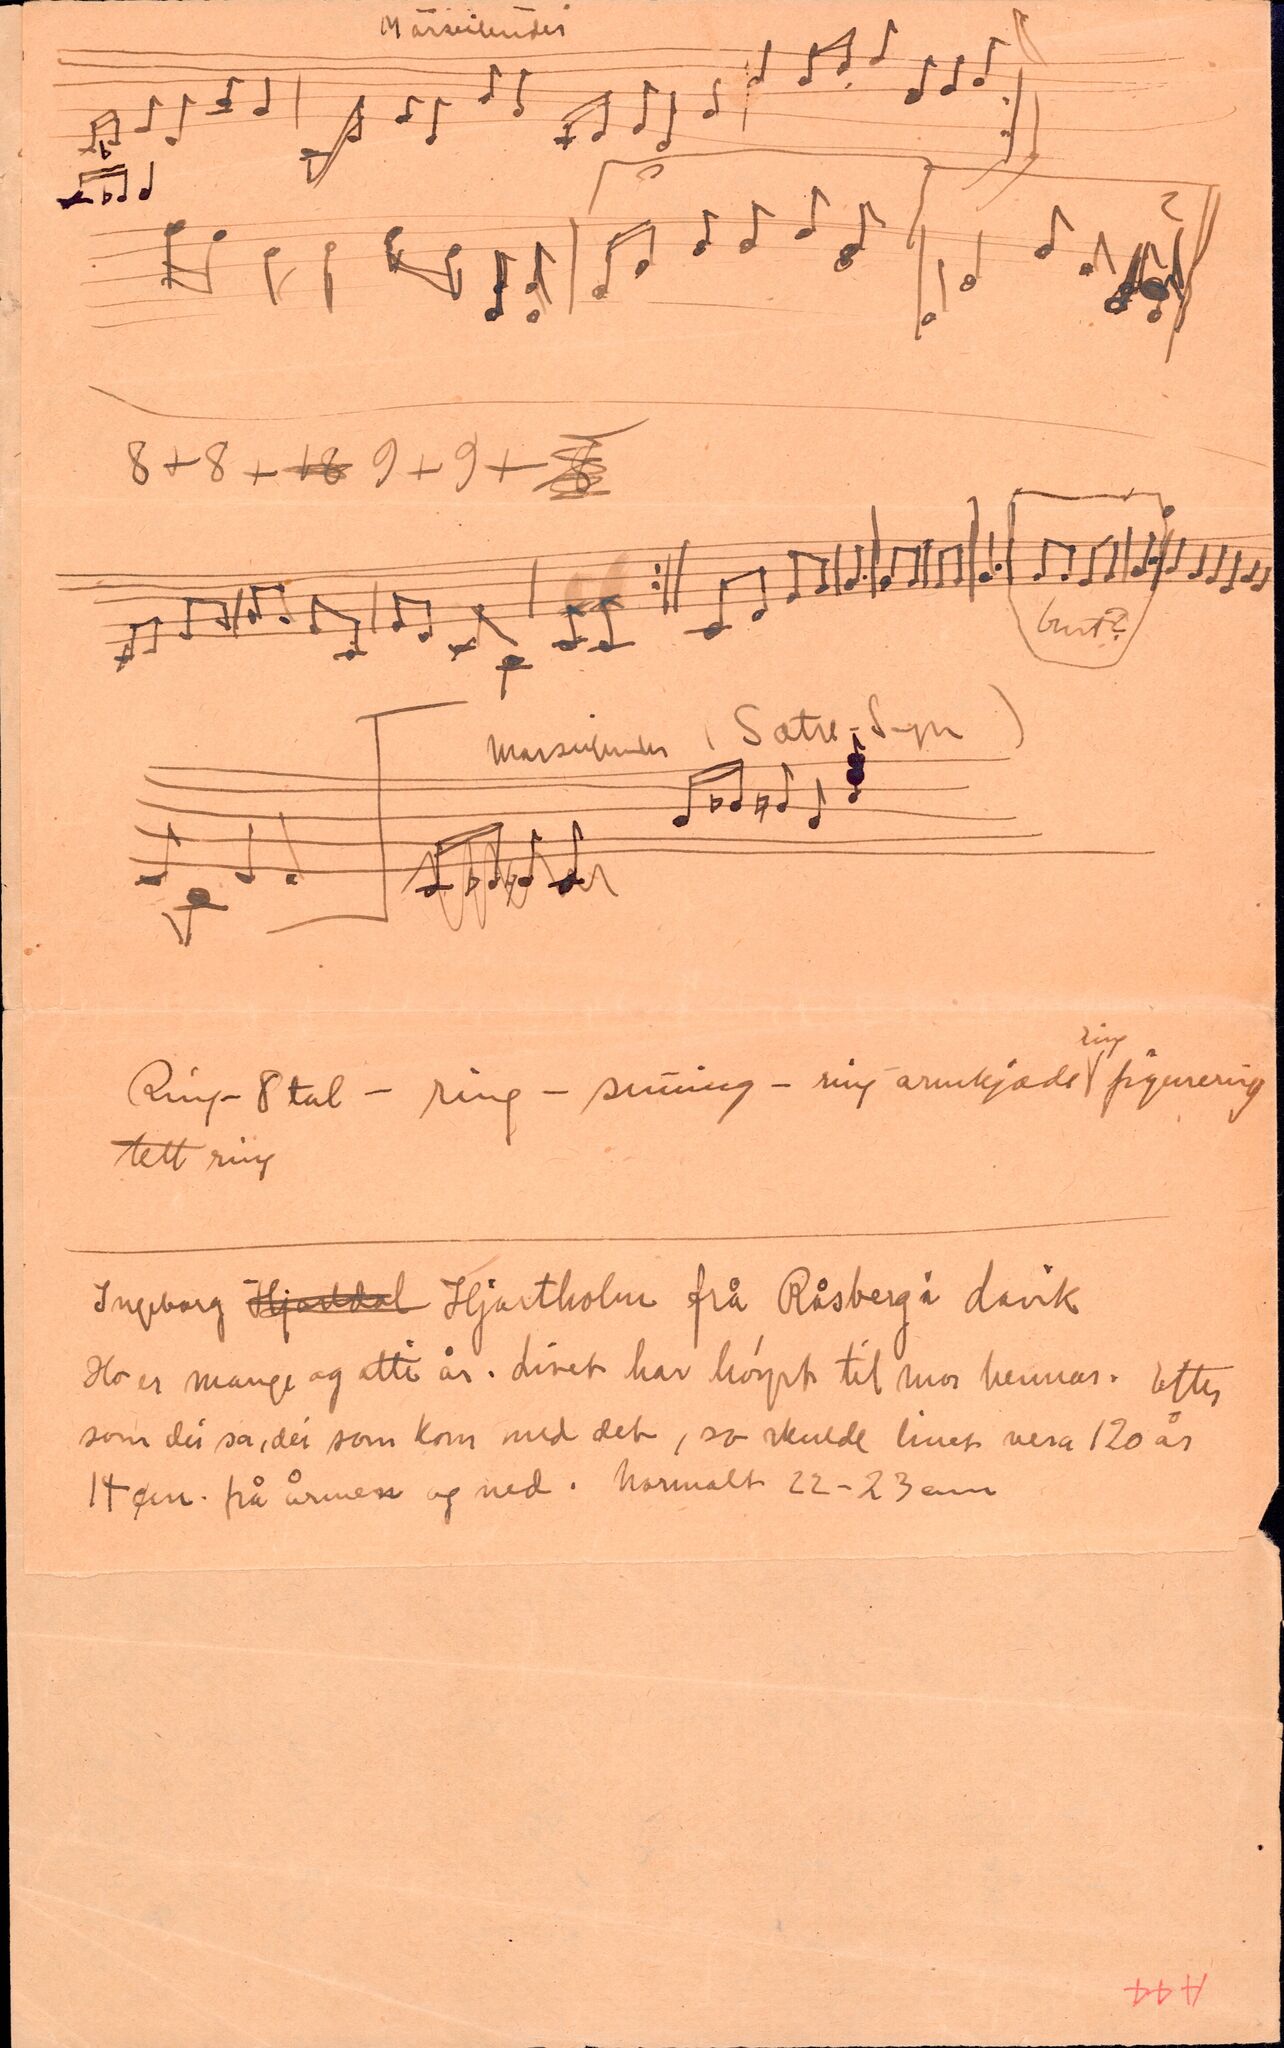 Marseilender
8 + 8 + 18 9 + 9 + 8
burt?
Marseilender (Sætre-
Ring - 8 tal - ring - snuing - ring armkjæde ring figurering
tett ring
Ingeborg Hjartdal Hjartholm frå Råsberg i Lavik
Ho er mange og åtti år. Livet har høyrt til mor hennar. Efter
som dei sa, dei som kom med det, so skulde livet vera 120 år
14 cm. frå årmen og ned. Normalt 22-23 cm
A 44